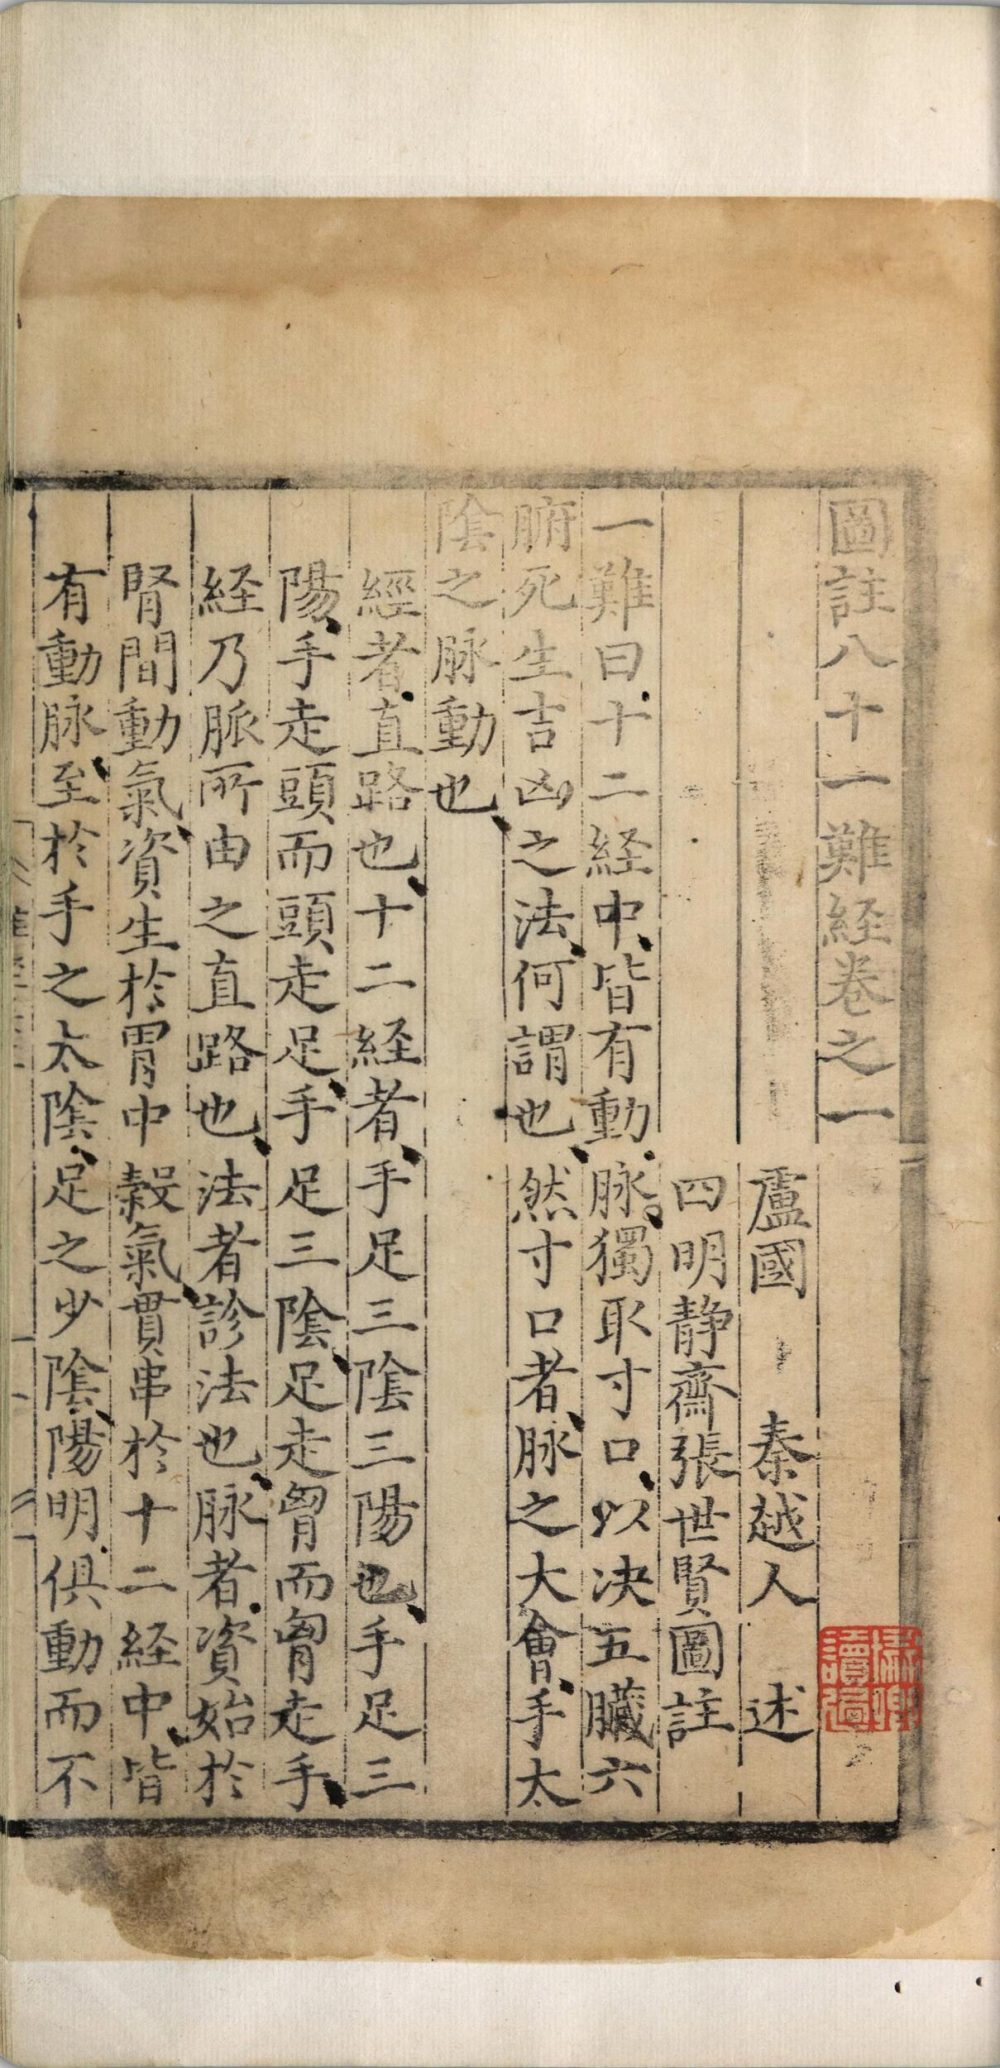 圖註八十一難経卷之一
盧國 秦越人 述
四明静齋張世賢圖註
一難曰十二経中皆有動脉獨取寸口以决五臓六
腑死生吉凶之法何謂也然寸口者脉之大會手太
陰之脉動也
經者直路也十二経者手足三陰三陽也手足三
陽手走頭而頭走足手足三陰足走胷而胷走手
経乃脈所由之直路也法者診法也脉者資始於
腎間動氣資生於胃中穀氣貫串於十二経中皆
有動脉至於手之太陰足之少陰陽明俱動而不